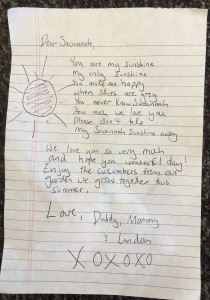 Dear Savannah,
You are my sunshine
my only sunshine
You make me happy
when skies are grey
You never know Savannah
how much we love you
Please don't take
my Savannah Sunshine away
We love you so very much
and hope you wonderful day!
Enjoy the cucumbers from our
garden we grew together this
summer.
Love, Daddy, Mommy
& London
XOXOXO